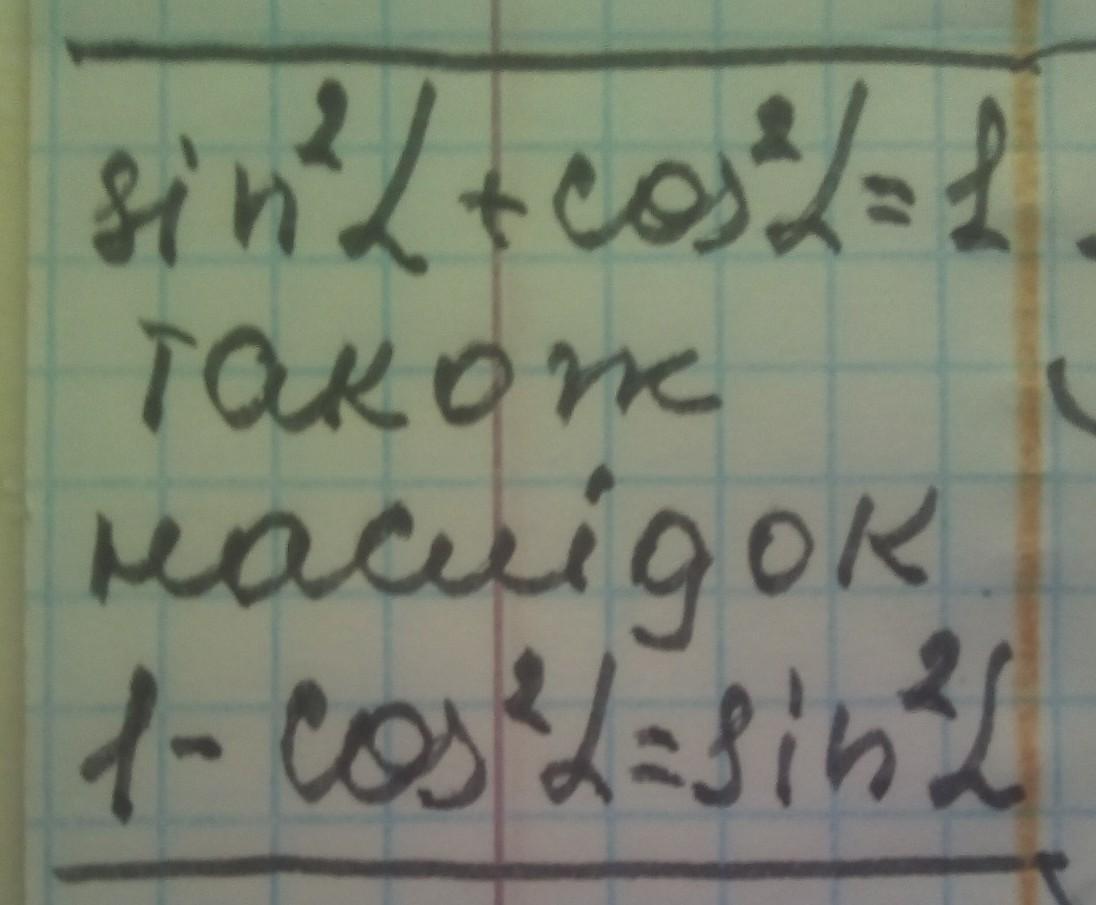 sin²α + cos²α = 1
також
наслідок
1 - cos²α = sin²α